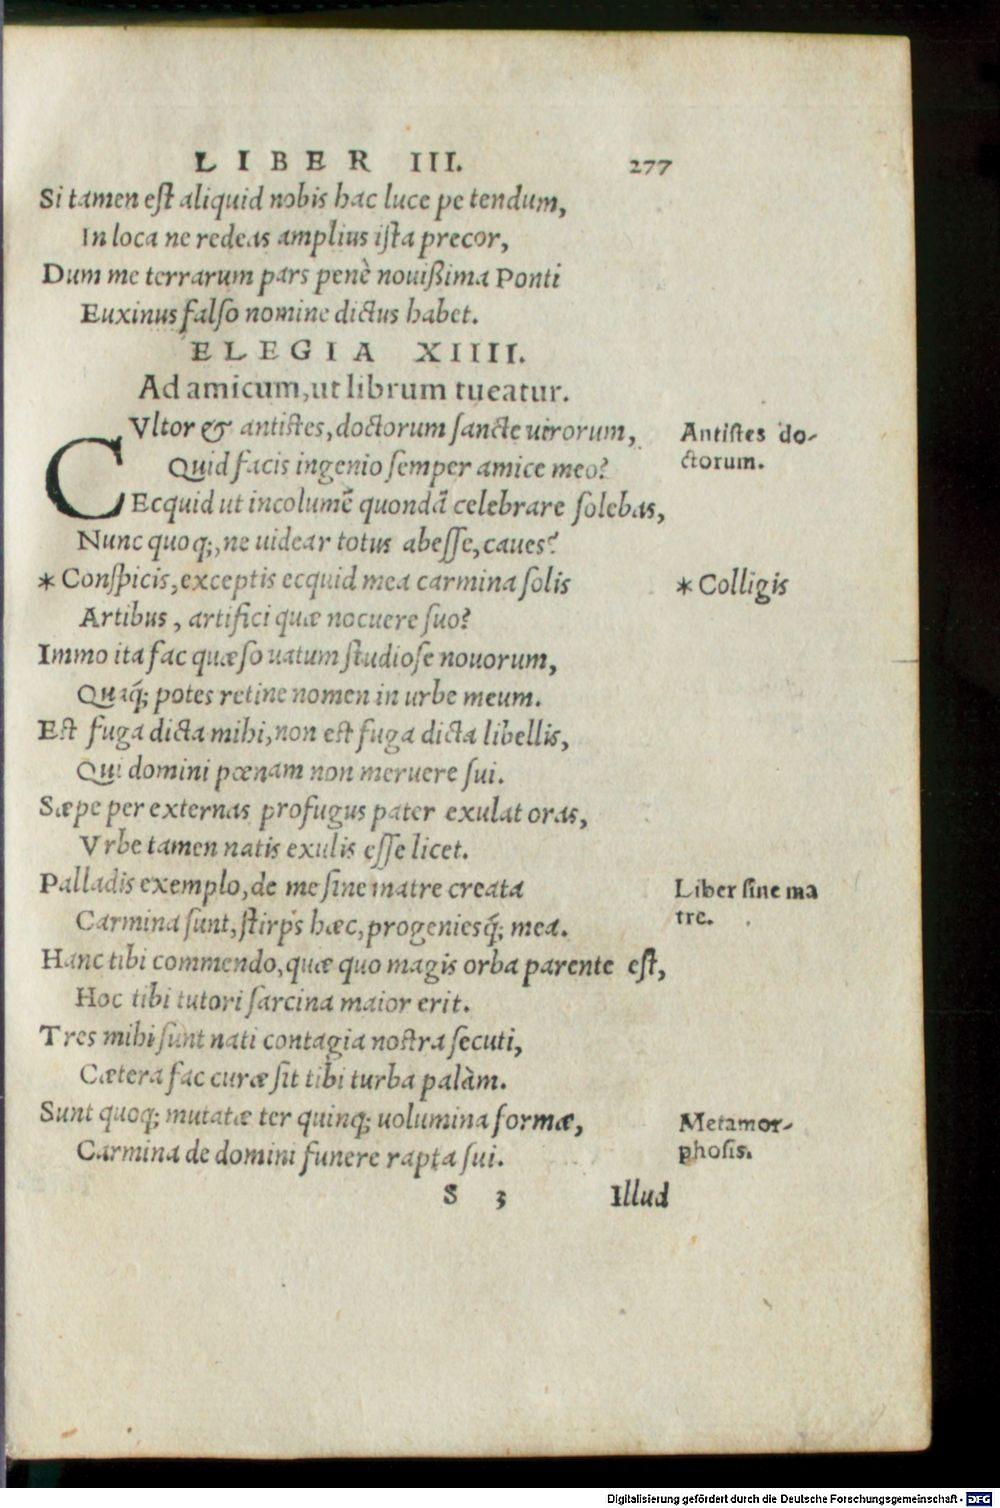 LIBER III. 277
Si tamen est aliquid nobis hac luce pe tendum,
In loca ne redeas amplius ista precor,
Dum me terrarum pars penè nouißima Ponti
Euxinus falso nomine dictus habet.
ELEGIA XIIII.
Ad amicum, ut librum tueatur.
CVltor & antistes, doctorum sancte uirorum,
Antistes do-
ctorum.
Quid facis ingenio semper amice meo?
Ecquid ut incolumē quondā celebrare solebas,
Nunc quoq;, ne uidear totus abesse, caues?
* Conspicis, exceptis ecquid mea carmina solis
* Colligis
Artibus, artifici quæ nocuere suo?
Immo ita fac quæso uatum studiose nouorum,
Quaq́; potes retine nomen in urbe meum.
Est fuga dicta mihi, non est fuga dicta libellis,
Qui domini pœnam non meruere sui.
Sæpe per externas profugus pater exulat oras,
Vrbe tamen natis exulis esse licet.
Palladis exemplo, de me sine matre creata
Liber sine ma
tre.
Carmina sunt, stirps hæc, progeniesq́; mea.
Hanc tibi commendo, quæ quo magis orba parente est,
Hoc tibi tutori sarcina maior erit.
Tres mihi sunt nati contagia nostra secuti,
Cætera fac curæ sit tibi turba palàm.
Sunt quoq; mutatæ ter quinq; uolumina formæ,
Metamor-
phosis.
Carmina de domini funere rapta sui.
S 3 Illud
Digitalisierung gefördert durch die Deutsche Forschungsgemeinschaft - DFG